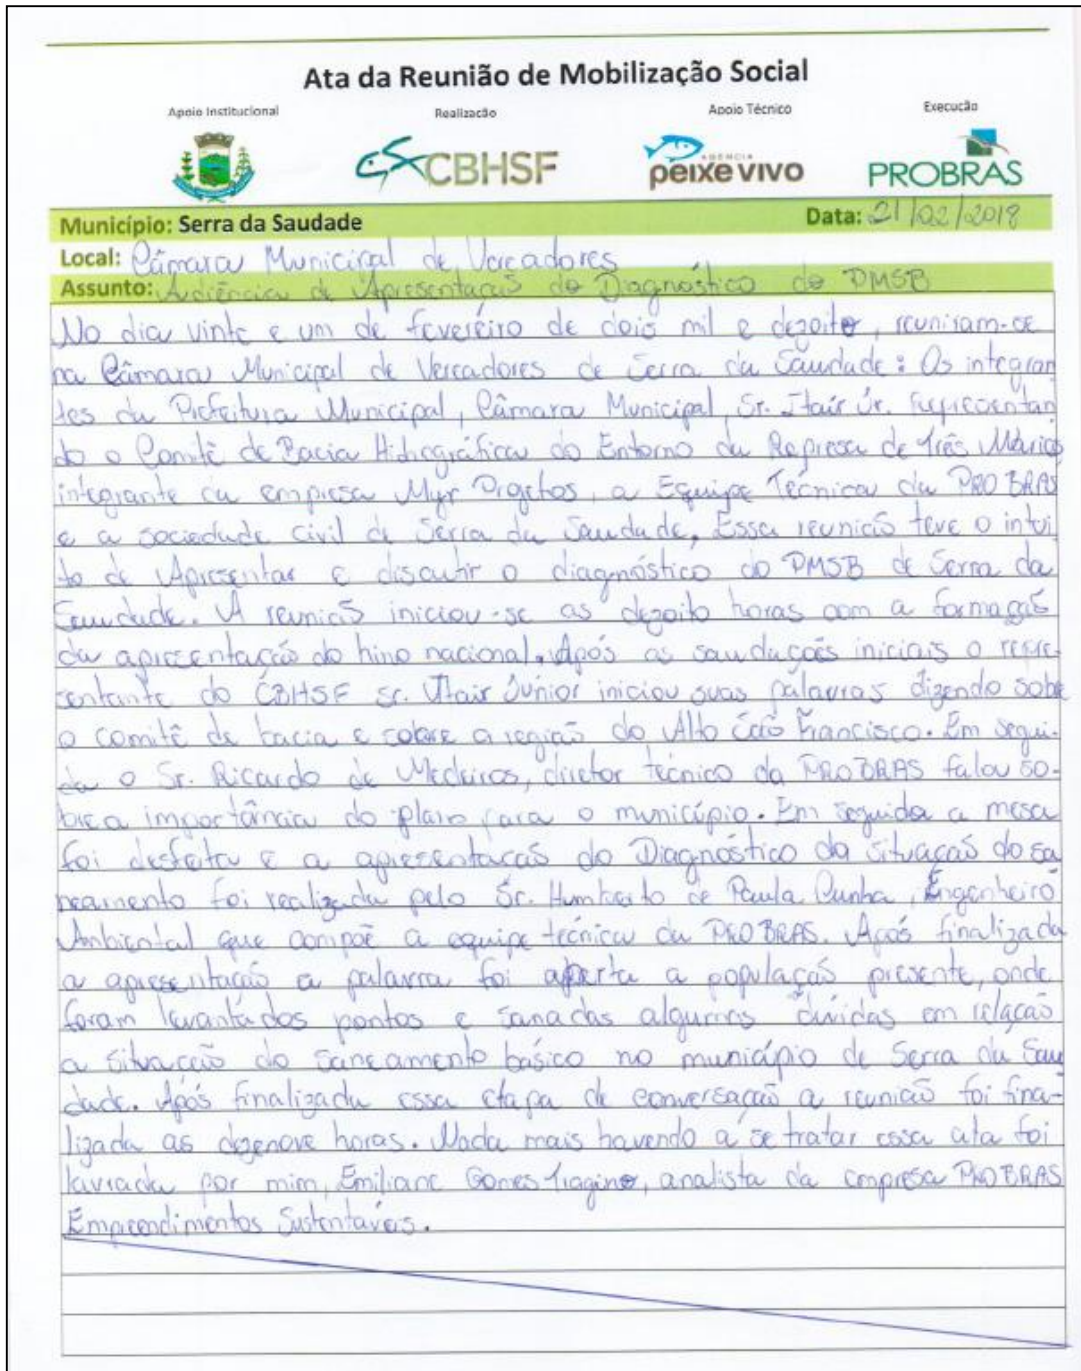 Ata da Reunião de Mobilização Social
Apoio Institucional Realização Apoio Técnico Execução
CBHSF AGÊNCIA peixe vivo PROBRAS
Município: Serra da Saudade Data: 21/02/2018
Local: Câmara Municipal de Vereadores
Assunto: Audiência de Apresentação do Diagnóstico do PMSB
No dia vinte e um de fevereiro de dois mil e dezoito, reuniram-se
na Câmara Municipal de Vereadores de Serra da Saudade: Os integran
tes da Prefeitura Municipal, Câmara Municipal, Sr. Itair Jr. representan
do o Comitê de Bacia Hidrográfica do Entorno da Represa de Três Marias
integrante da empresa Myr Projetos, a Equipe Técnica da PROBRAS
e a sociedade civil de Serra da Saudade, Essa reunião teve o intui
to de Apresentar e discutir o diagnóstico do PMSB de Serra da
Saudade. A reunião iniciou-se as dezoito horas com a formação
da apresentação do hino nacional. Após as saudações iniciais o repre
sentante do CBHSF sr. Itair Júnior iniciou suas palavras dizendo sobre
o comitê de bacia e sobre a região do Alto São Francisco. Em segui-
da o Sr. Ricardo de Medeiros, diretor técnico da PROBRAS falou so-
bre a importância do plano para o município. Em seguida a mesa
foi desfeita e a apresentação do Diagnóstico da situação do sa
neamento foi realizada pelo Sr. Humberto de Paula Cunha, Engenheiro
Ambiental que compõe a equipe técnica da PROBRAS. Após finalizada
a apresentação a palavra foi aberta a população presente, onde
foram levantados pontos e sanadas algumas dúvidas em relação
a situação do saneamento básico no município de Serra da Sau
dade. Após finalizada essa etapa de conversação a reunião foi fina-
lizada as dezenove horas. Nada mais havendo a se tratar essa ata foi
lavrada por mim, Emiliane Gomes, analista da empresa PROBRAS
Empreendimentos Sustentáveis.